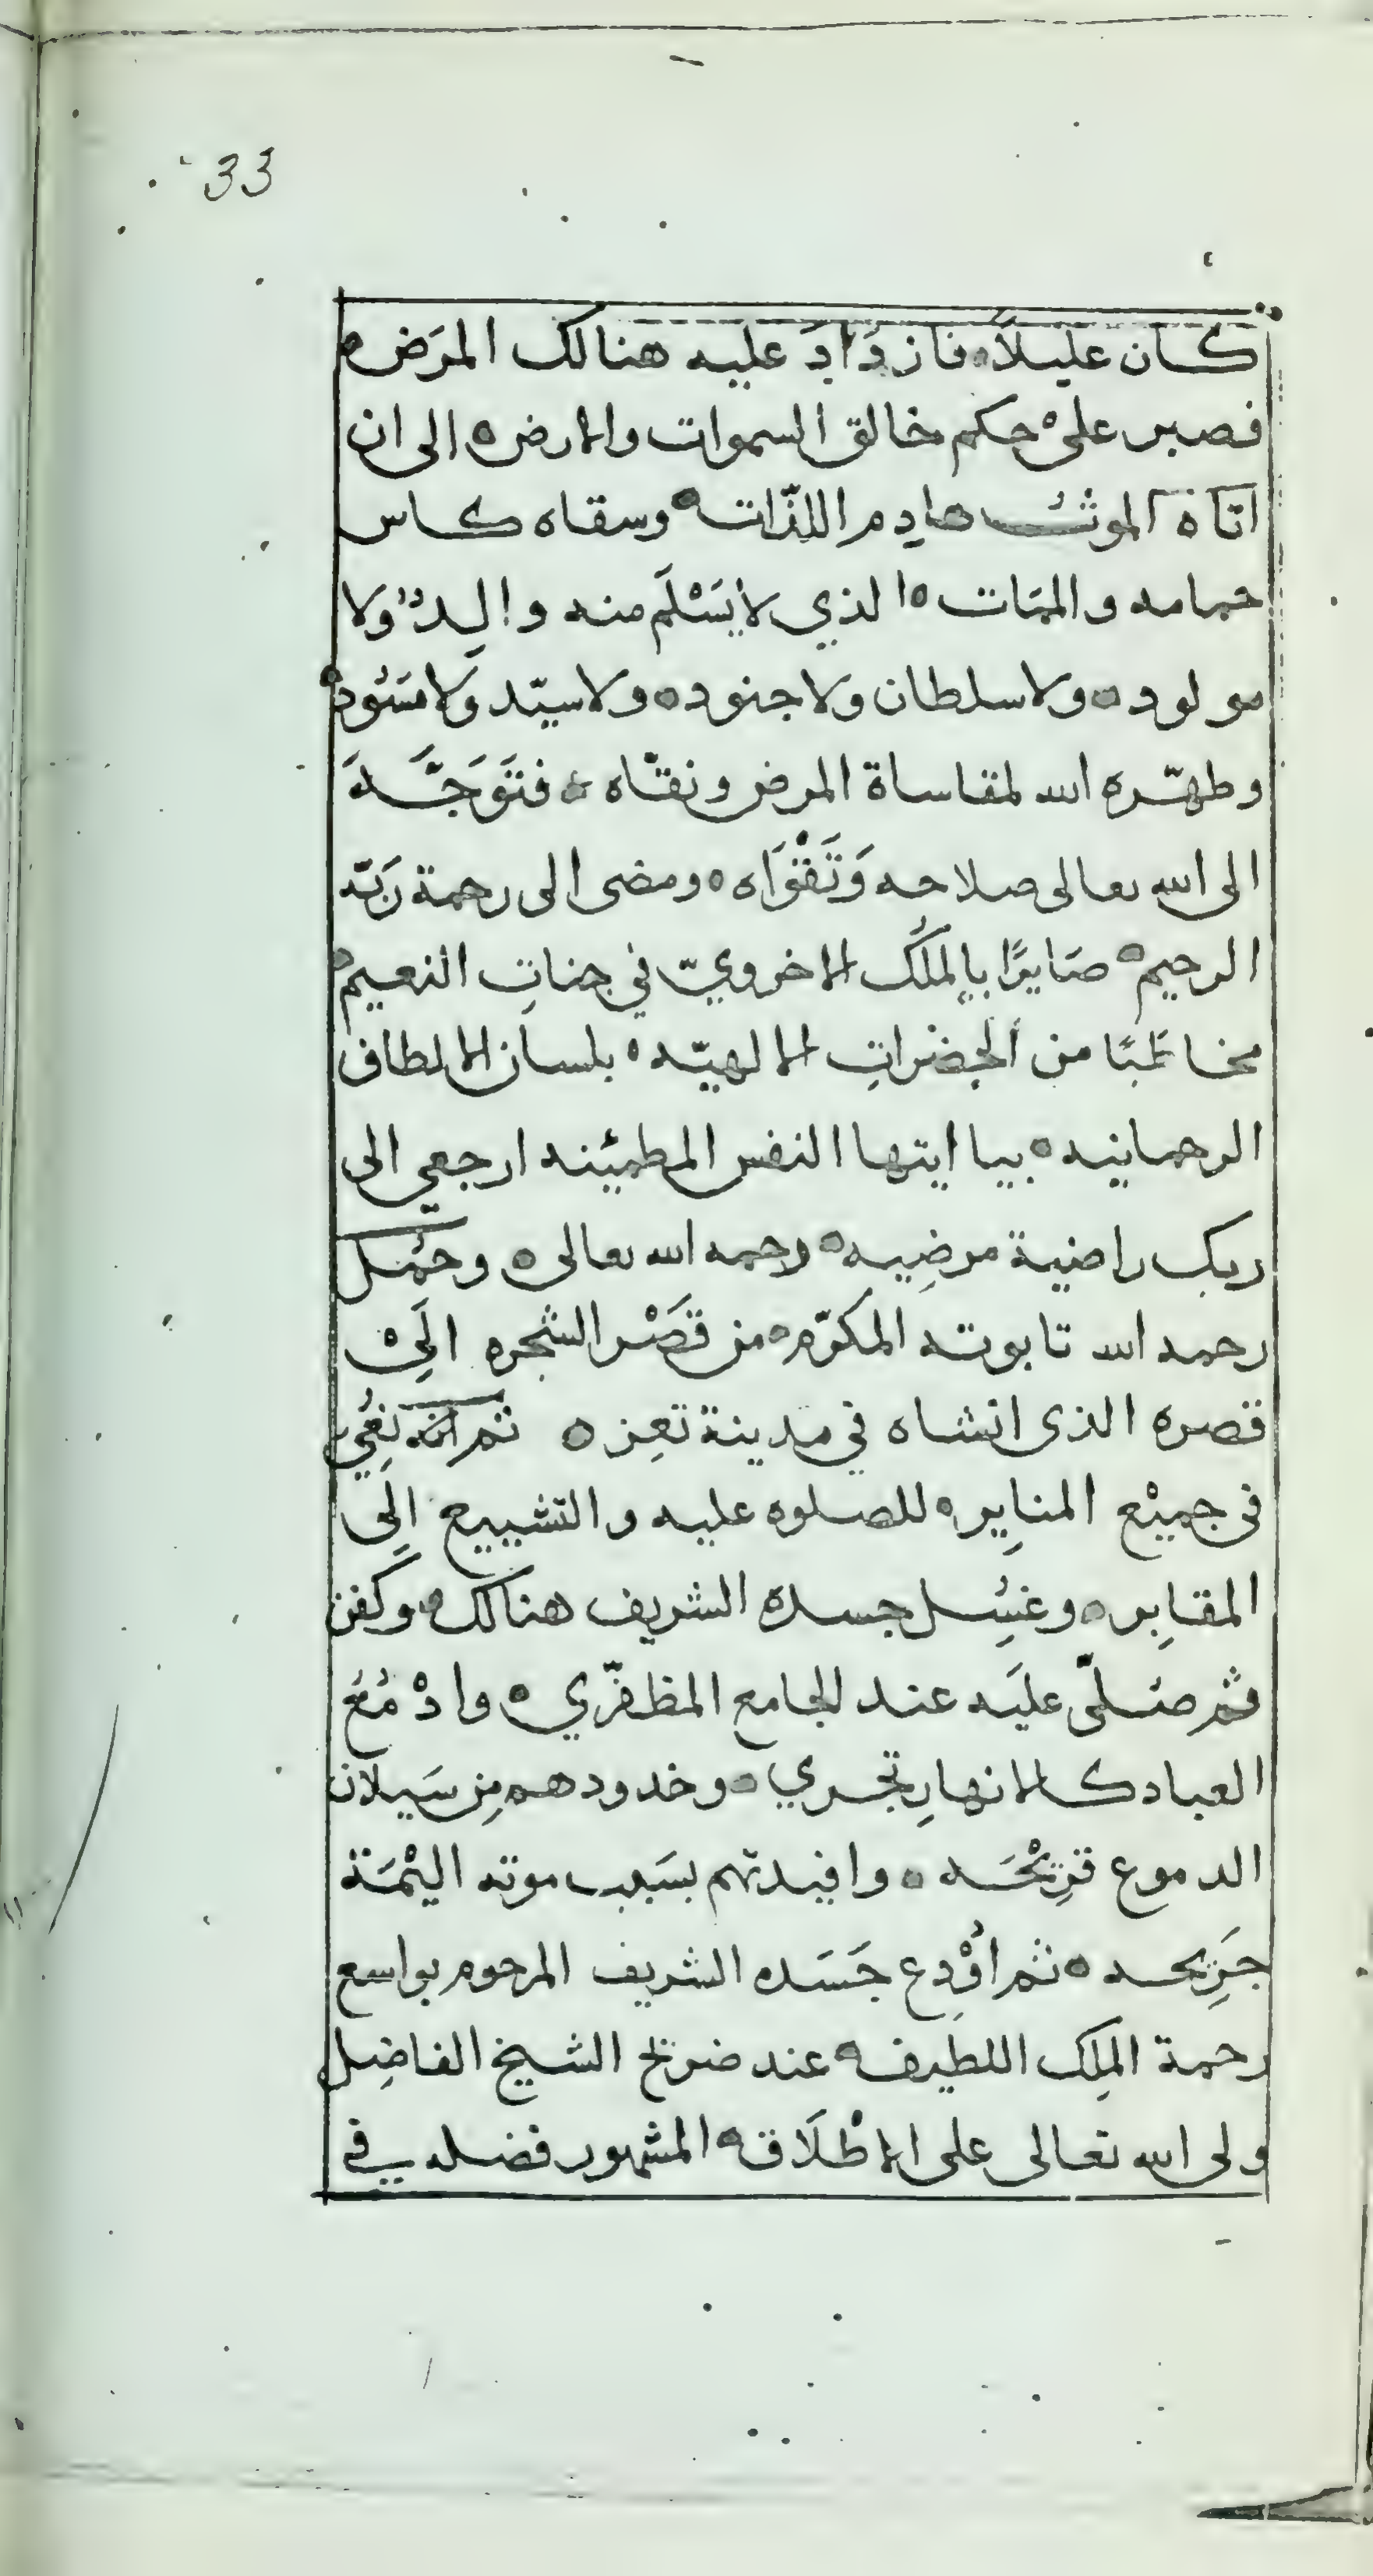 33
كان عليلًا ه فازدادَ عليه هنالك المرَض ه
فصبر علىْ حكم خالق السموات والارض ه الى ان
اتاه الموت هادِم اللذّات ه وسقاه كاس
حمامه والممَات ه الذي لا يَسْلَم منه والِدٌ وَلا
مولود ه ولا سلطان ولا جنود ه ولا سيّد وَلا مسَود ه
وطهّره الله لمقاساة المرض ونقّاه ه فتَوَجَّهَ
الى الله تعالى صلاحه وَتَقْوَاه ه ومضى الى رحمة رَبّه
الرحيم ه صَايرًا بالملك الاخرويّ في جناتِ النعيم ه
مخاطَبًا من الحضراتِ الالهيّه ه بلسان الالطاف
الرحمانيه ه بيا ايتها النفس المطمئنه ارجعي الى
ربك راضية مرضِيه ه رحمه الله تعالى ه وحُمل
رحمه الله تابوته المكرّم ه من قَصْر الشجره الَىْ
قصره الذى انشاه في مدينة تعِز ه ثم انه نُعِي
فى جميْع المنابِر ه للصلوه عليه والتشييع الَى
المقابِر ه وغسُل جسده الشريف هنالك ه وكفن
فثم صُلّى عليَه عند الجامع المظفّري ه وادْمُعُ
العباد كالانهارِ تجري ه وخدودهم مِن سَيلان
الدموع قرِيْحَه ه وافيدتهم بسَبب موته اليْمَة
جَرِيحه ه ثم أوْدِع جَسَده الشريف المرحوم بواسع
رحمة المِلك اللطيف ه عند ضريح الشيخ الفاضِل
ولى الله تعالى على الاطْلَاق ه المشهور فضله في